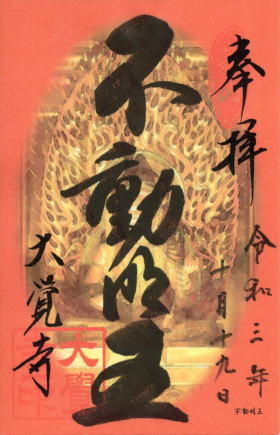 奉拝
令和三年
十月十九日
不動明王
大覚寺
大覺
不動明王